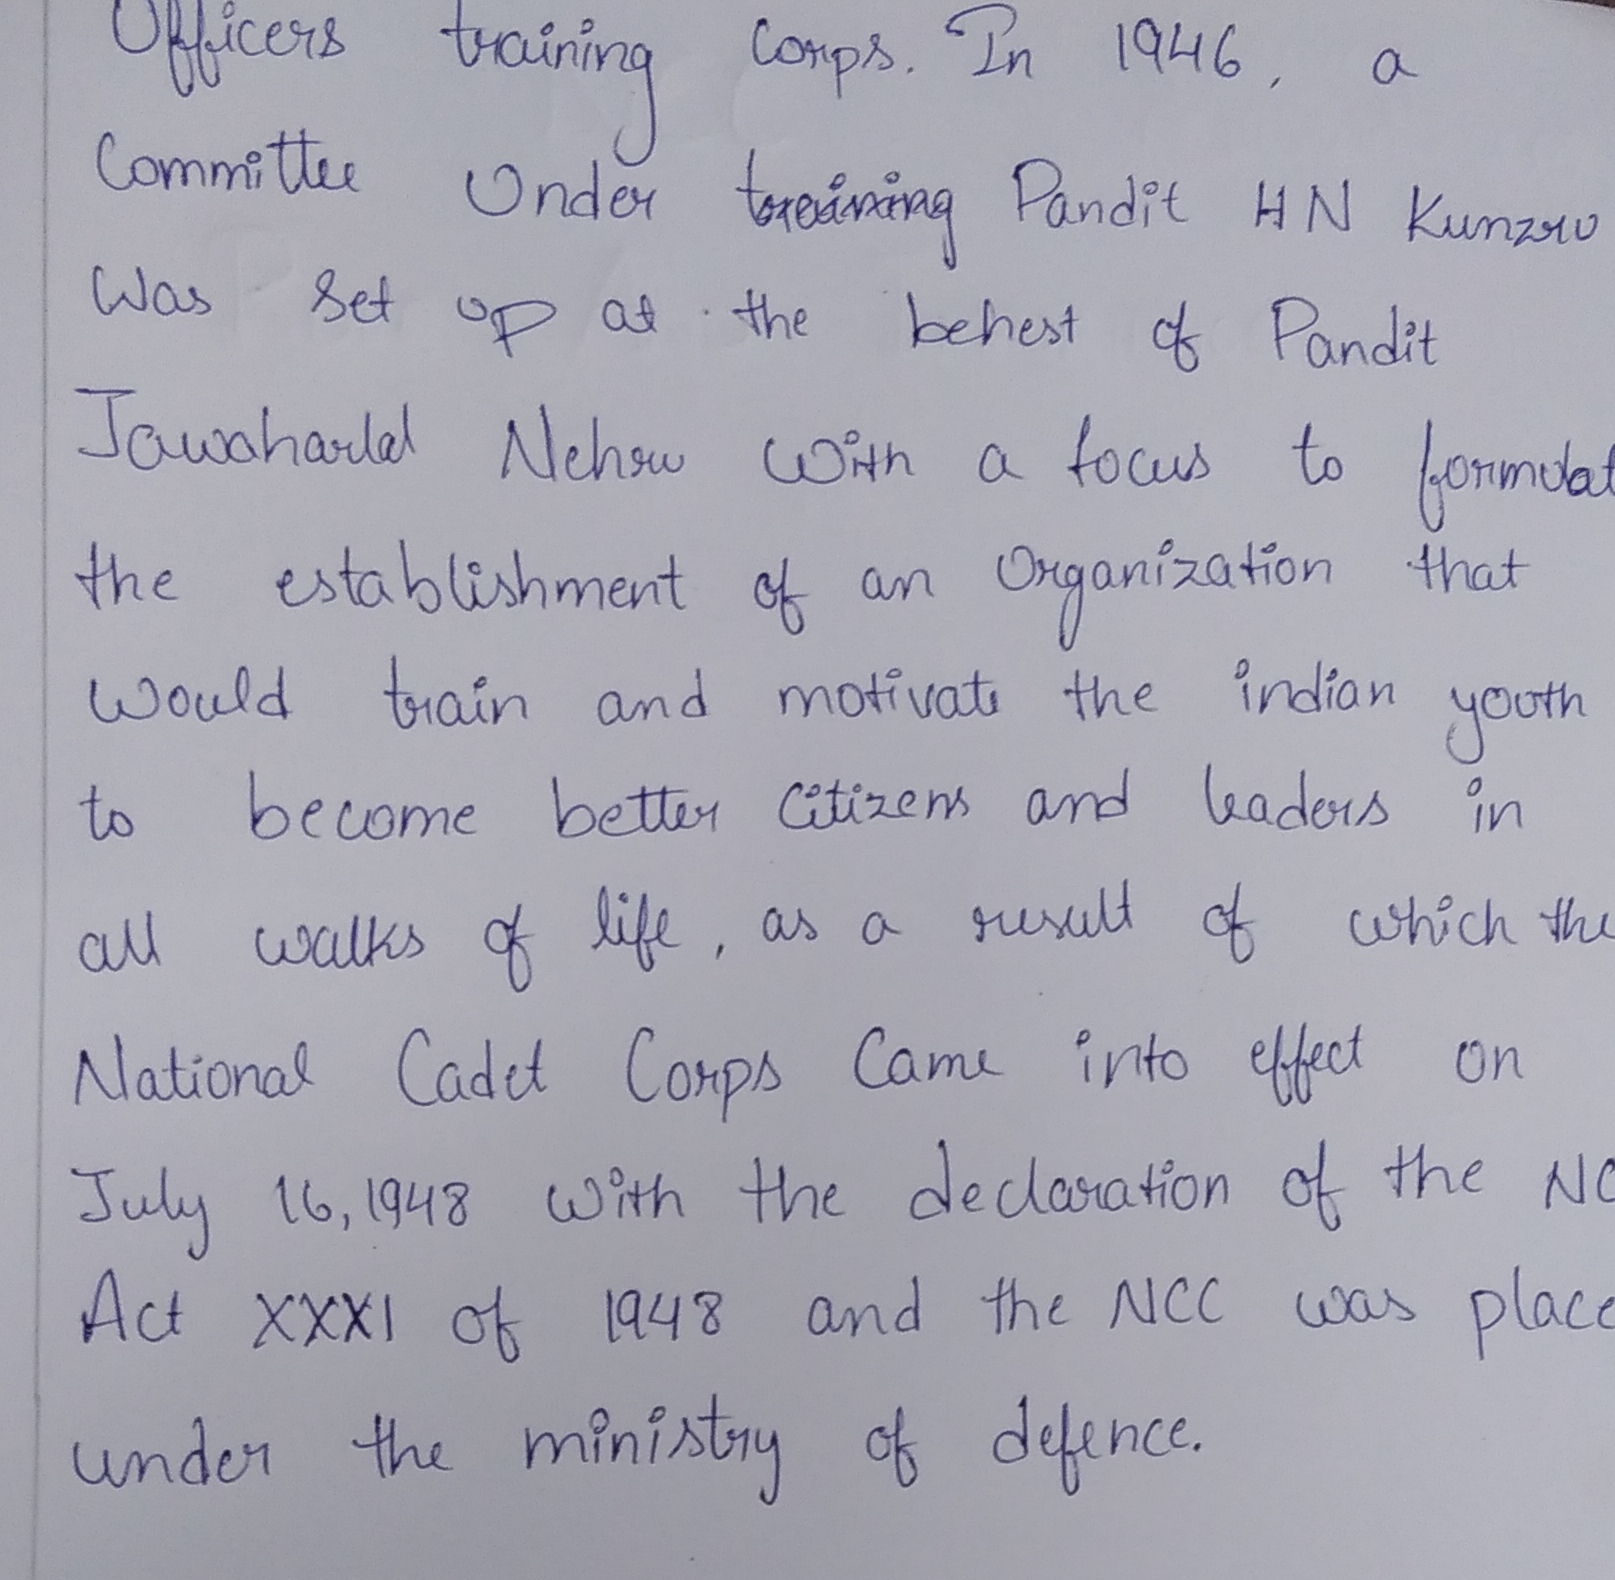 Officers training Corps. In 1946, a
Committee Under training Pandit HN Kunzru
Was Set up at the behest of Pandit
Jawaharlal Nehru With a focus to formulat
the establishment of an Organization that
Would train and motivate the indian youth
to become better Citizens and leaders in
all walks of life, as a result of which the
National Cadet Corps Came into effect on
July 16, 1948 With the declaration of the NC
Act XXXI of 1948 and the NCC was place
under the ministry of defence.